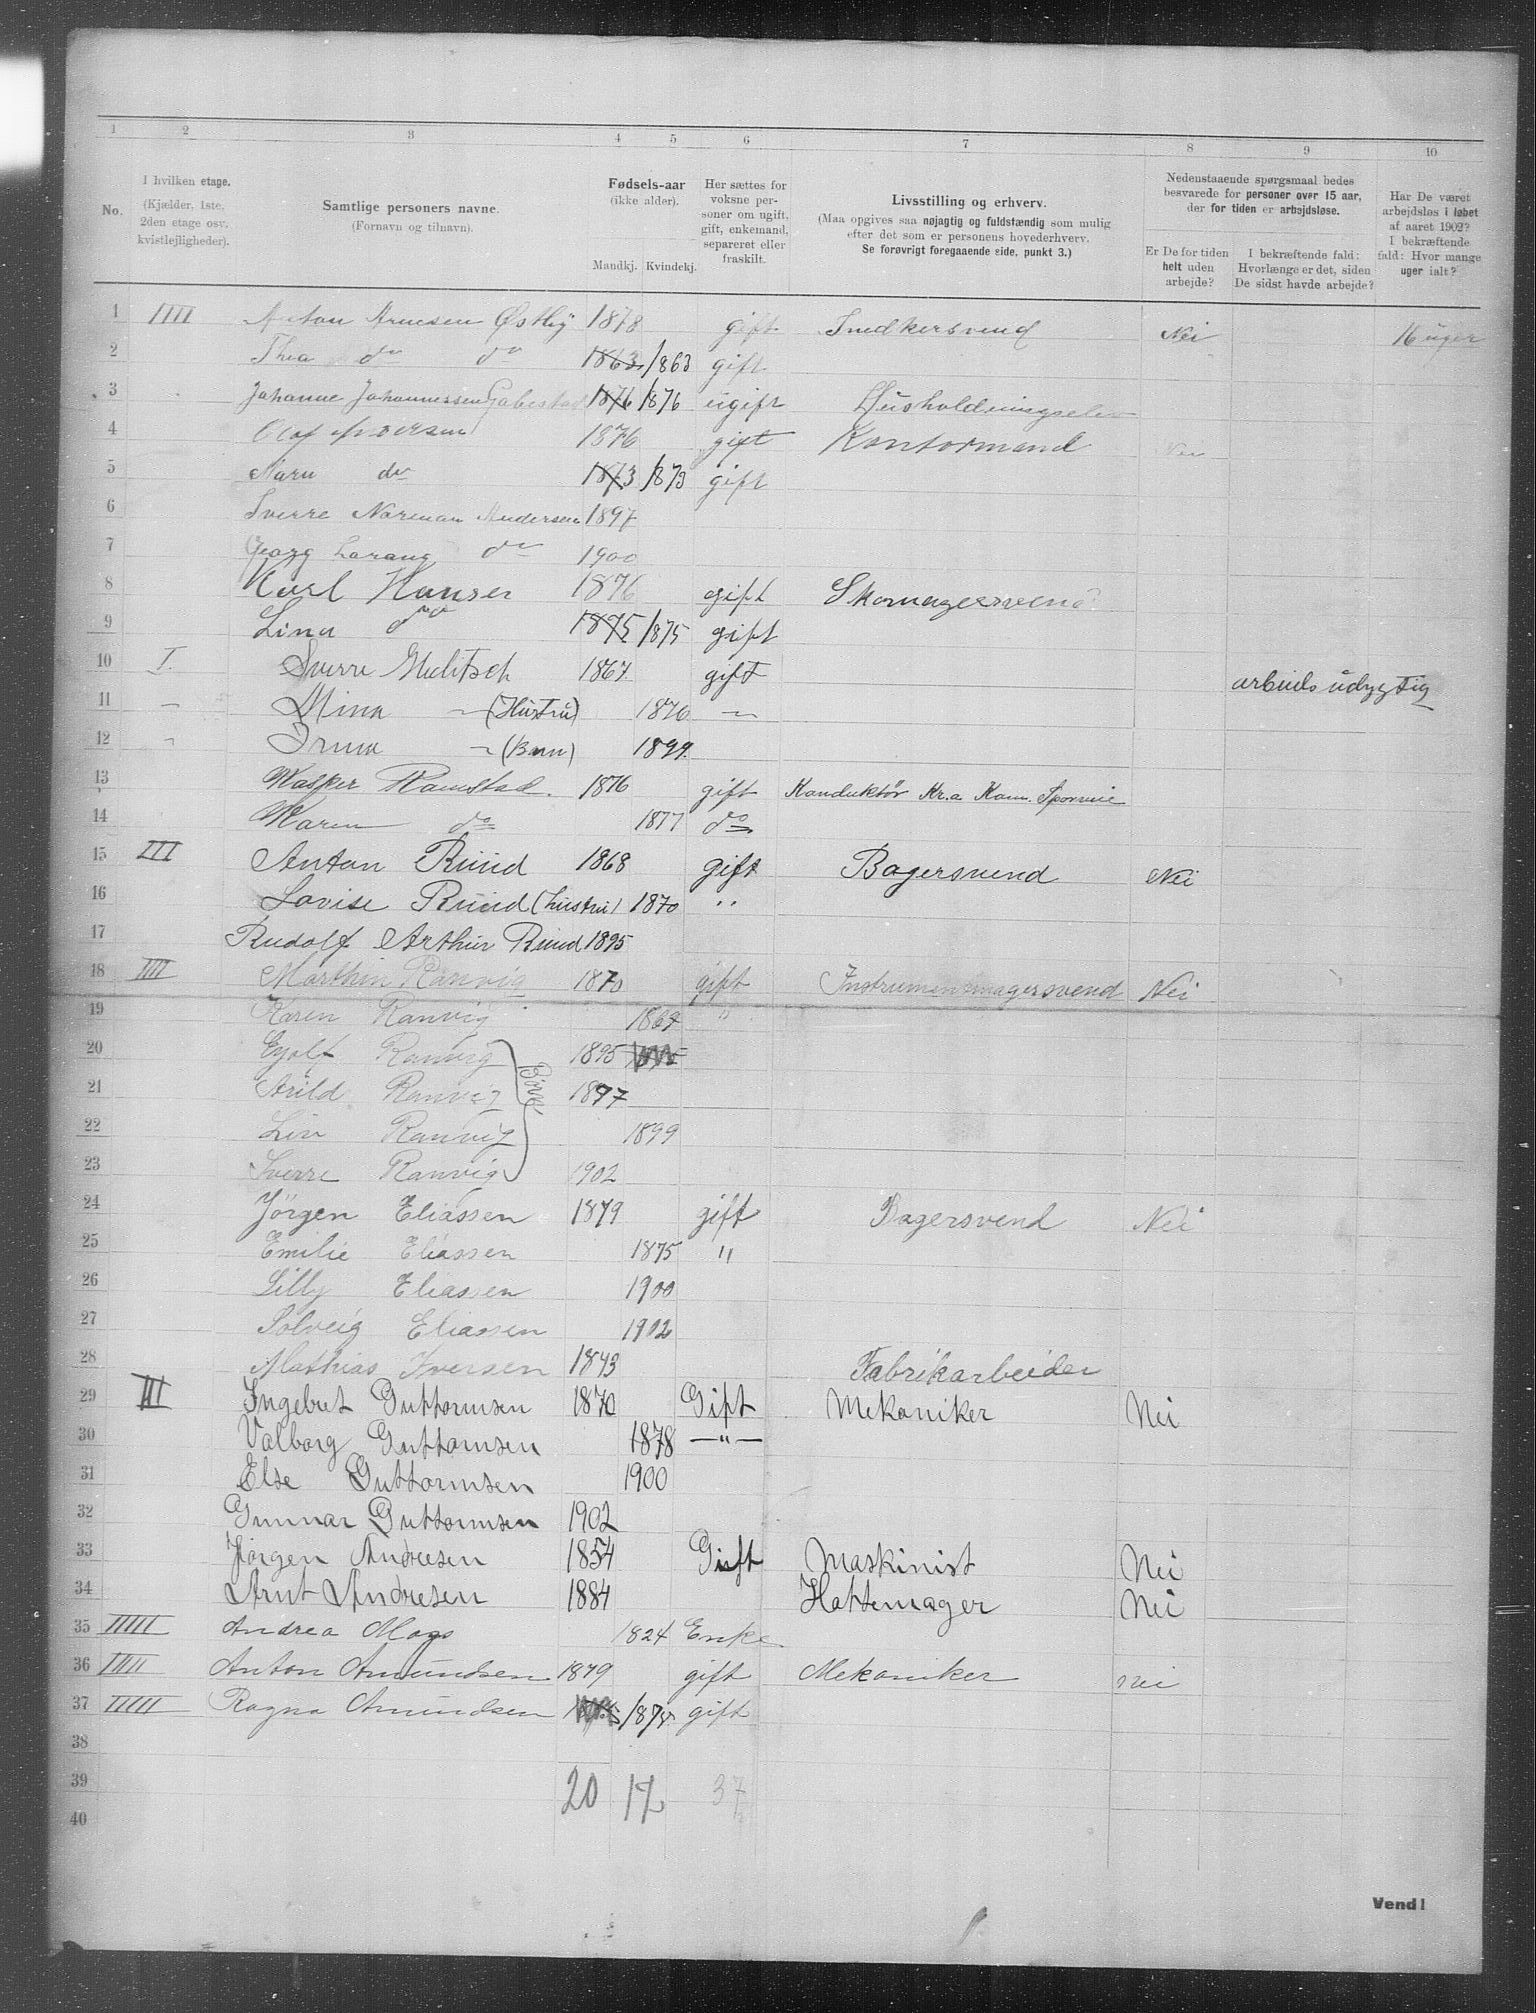 1 2 3 4 5 6 7 8 9 10
No.
I hvilken etage.
(Kjælder, 1ste, 2den etage osv. kvistlejligheder).
Samtlige personers navne.
(Fornavn og tilnavn).
Fødsels-aar
(ikke alder).
Mandkj. Kvindekj.
Her sættes for voksne personer om ugift, gift, enkemand, separeret eller fraskilt.
Livsstilling og erhverv.
(Maa opgives saa nøjagtig og fuldstændig som mulig efter det som er personens hovederhverv.
Se forøvrigt foregaaende side, punkt 3.)
Nedenstaaende spørgsmaal bedes besvarede for personer over 15 aar, der for tiden er arbejdsløse.
Er De for tiden helt uden arbejde?
I bekræftende fald: Hvorlænge er det, siden De sidst havde arbejde?
Har De været arbejdsløs i løbet af aaret 1902? I bekræftende fald: Hvor mange uger ialt?
1 IIII Anton Arnesen Østby 1878 gift Snedkersvend Nei 16 uger
2 Thea do do 1863 1863 gift
3 Johanne Johannessen 1876 1876 ugift Husholdningselev
4 Olaf Andersen 1876 gift Kontormand Nei
5 do 1873 1873 gift
6 Sverre Norman Andersen 1897
7 Georg do 1900
8 Karl Hansen 1876 gift Skomagersvend
9 Lina do 1875 1875 gift
10 I. Sverre 1867 gift arbeids udygtig
11 " Mina " (Hustru) 1876 "
12 " " (Barn) 1899
13 Kasper Ramstad. 1876 gift Konduktør Kr.a Kom. Sporveie
14 Karen do 1877 do
15 III Anton Ruud 1868 gift Bagersvend Nei
16 Lovise Ruud (hustru) 1870 "
17 Rudolf Arthur Ruud 1895
18 IIII Marthin Ranvig 1870 gift Instrumentmagersvend Nei
19 Karen Ranvig 1867 "
20 Eyolf Ranvig 1895
21 Arild Ranvig 1897
22 Liv Ranvig 1899
23 Sverre Ranvig 1902
Børn
24 Jörgen Eliassen 1879 gift Bagersvend Nei
25 Emilie Eliassen 1875 "
26 Lilly Eliassen 1900
27 Solveig Eliassen 1902
28 Mathias Iversen 1843 Fabrikarbeider
29 III Ingebret Guttormsen 1870 Gift Mekaniker Nei
30 Valborg Guttormsen 1878 —"—
31 Else Guttormsen 1900
32 Gunnar Guttormsen 1902
33 Jörgen Andresen 1854 Gift Maskinist Nei
34 Arnt Andresen 1884 Hattemager Nei
35 IIIII Andrea Mogs 1824 Enke
36 IIIII Anton Amundsen 1879 gift Mekaniker nei
37 IIIII Ragna Amundsen 1875 gift
38
39 20 17 37
40
Vend!